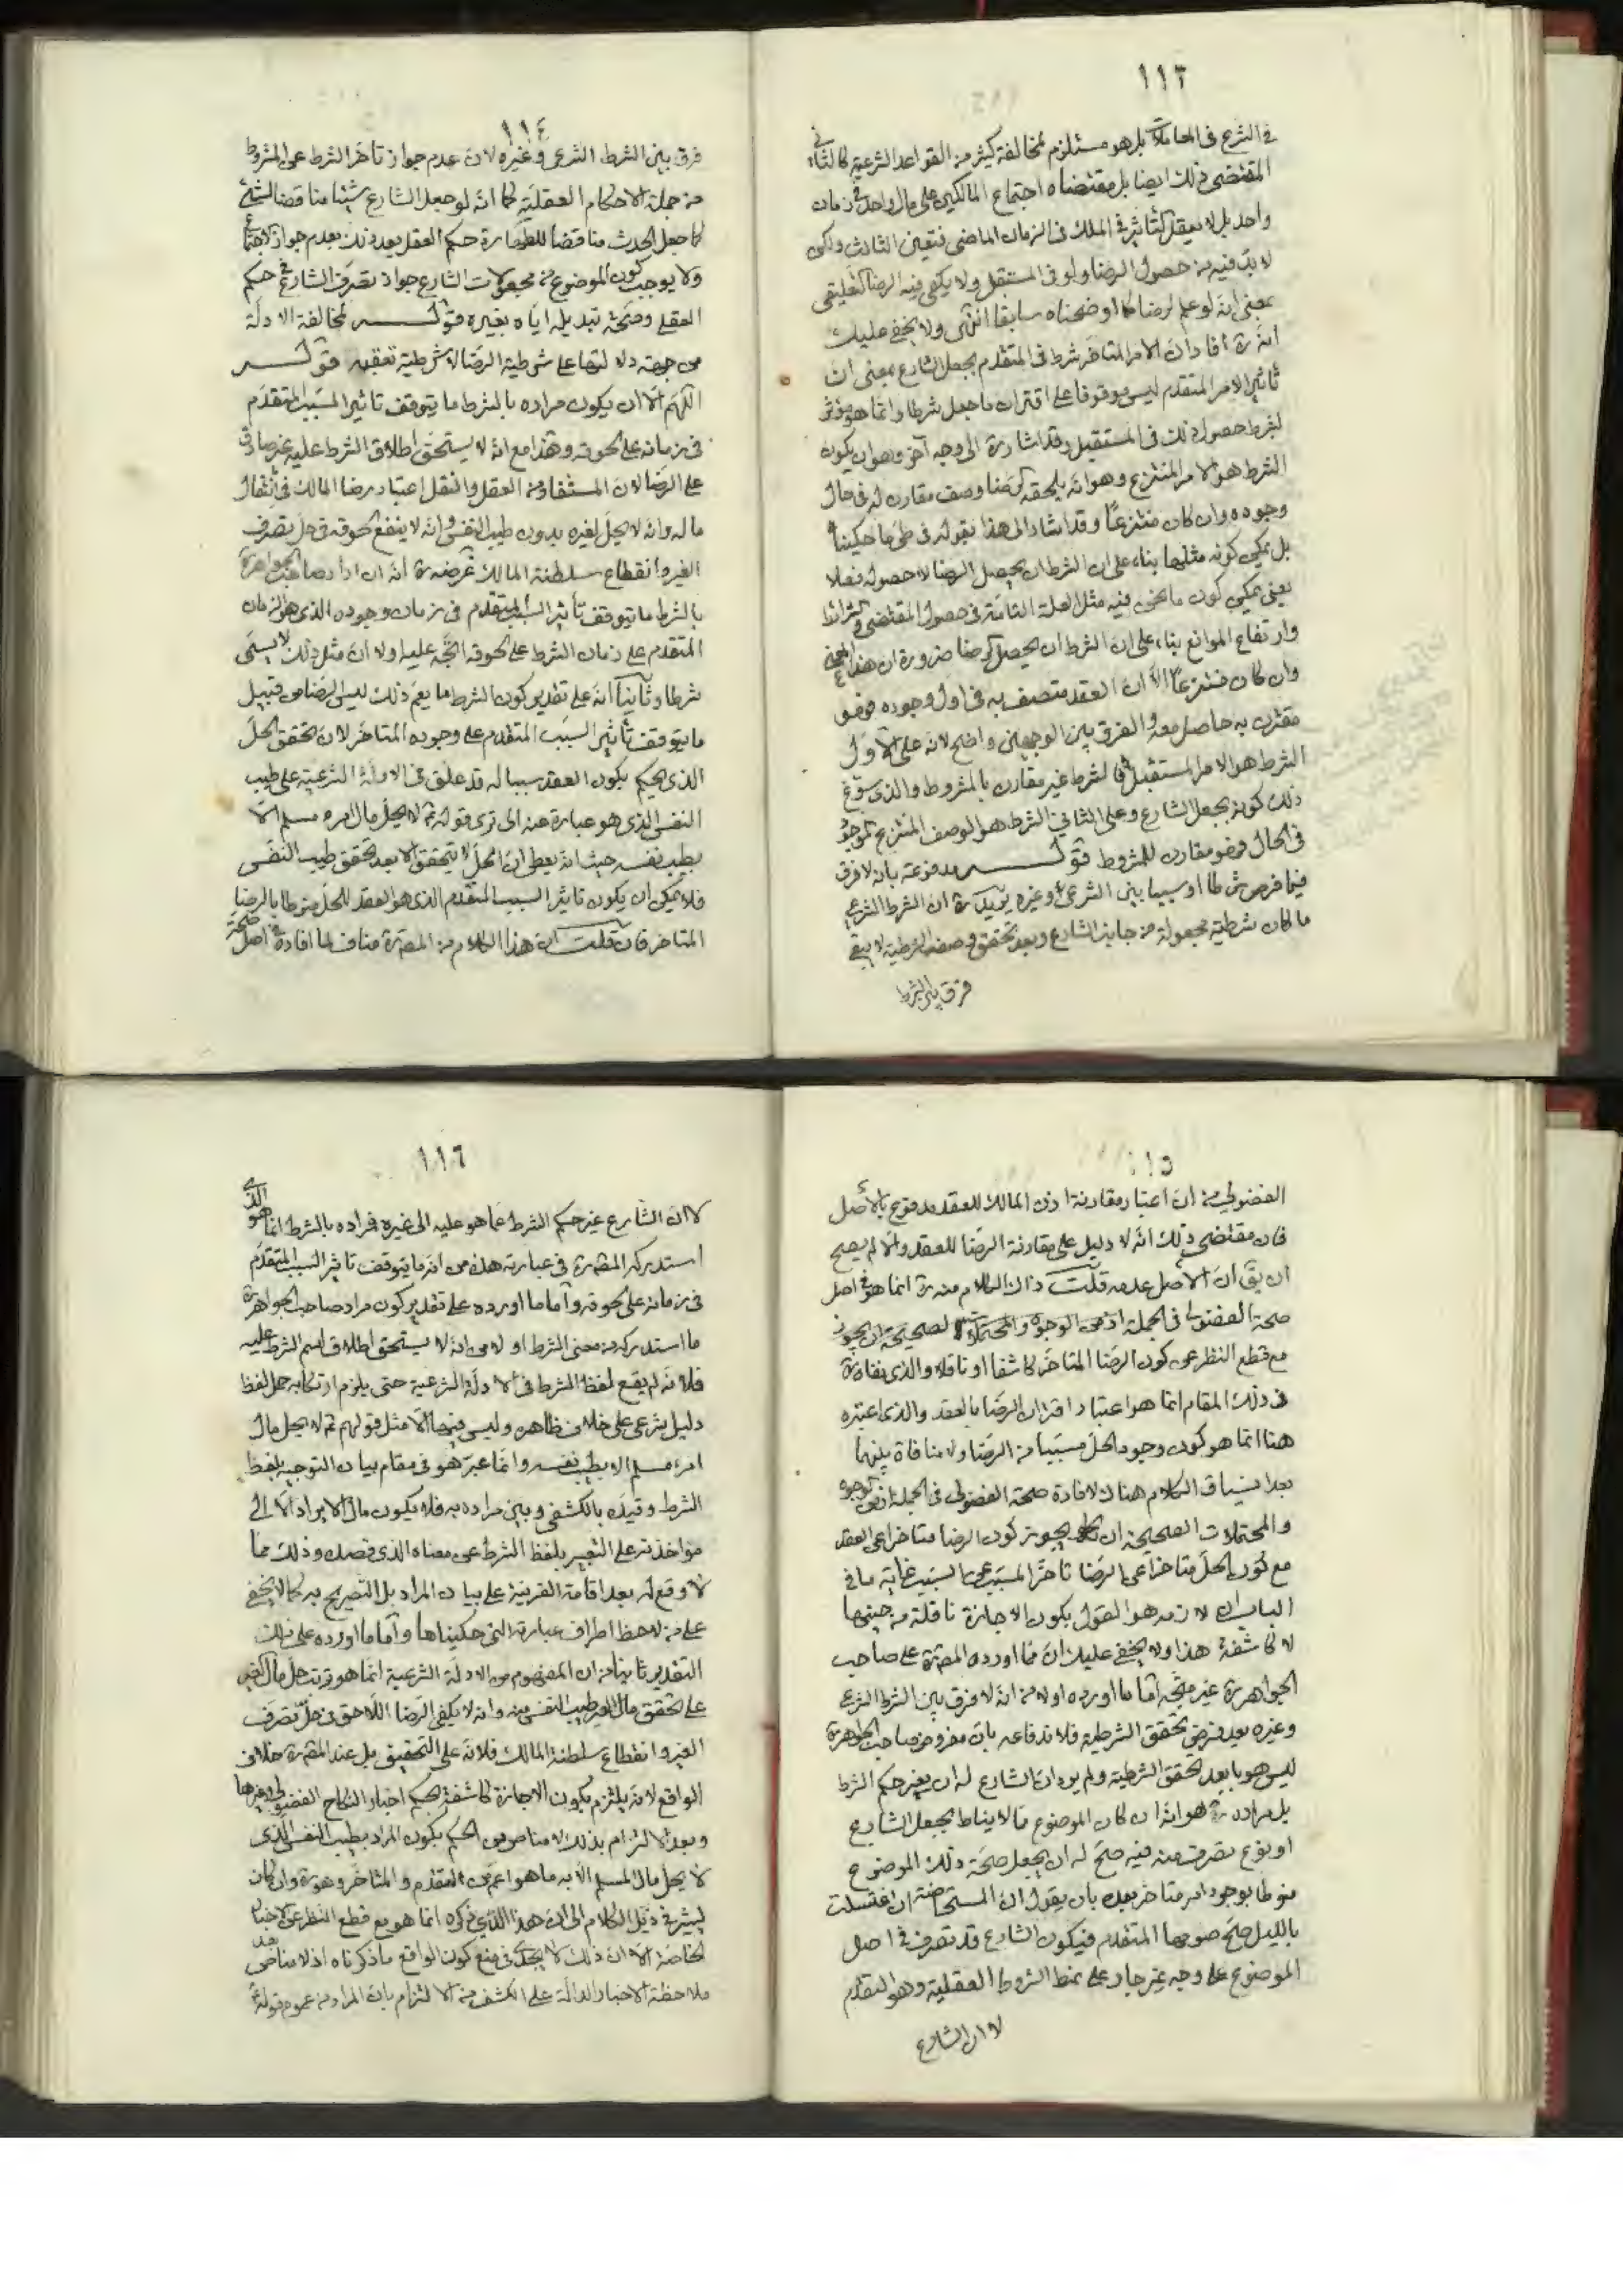 ١١٣
في الشرع في المعاملات بل هو مستلزم لمخالفة كثير من القواعد الشرعية كالثاني
المقتضى ذلك ايضا بل مقتضاه اجتماع المالكين على مال واحد في زمان
واحد بل لا يعقل التأثير في الملك في الزمان الماضي فتعين الثالث ولكن
لا بد فيه من حصول الرضا ولو في المستقبل ولا يكفي فيه الرضا التعليقي
بمعنى انه لو علم لرضا كما اوضحناه سابقا انتهى ولا يخفى عليك
انه ره افاد ان الامر المتاخر شرط في المتقدم بجعل الشارع بمعنى ان
تاثير الامر المتقدم ليس موقوفا على اقتران ما جعل شرطا وانما هو مؤثر
بشرط حصول ذلك في المستقبل وقد اشار ره الى وجه آخر وهو ان يكون
الشرط هو الامر المنتزع وهو انه يلحقه الرضا وصف مقارن له في حال
وجوده وان كان منتزعا وقد اشار الى هذا بقوله في طي ما حكيناه
بل يمكن كونه مثلها بناء على ان الشرط ان يحصل الرضا لا حصوله فعلا
يعني يمكن كون ما نحن فيه مثل العلة التامة في حصول المقتضى والشرائط
وارتفاع الموانع بناء على ان الشرط ان يحصل الرضا ضرورة ان هذا المعنى
وان كان منتزعا الا ان العقد متصف به في اول وجوده فهو
مقترن به حاصل معه والفرق بين الوجهين واضح لانه على الاول
الشرط هو الامر المستقبل فالشرط غير مقارن بالمشروط والذي سوغ
ذلك كونه بجعل الشارع وعلى الثاني الشرط هو الوصف المنتزع الموجود
في الحال فهو مقارن للمشروط قوله مدفوعة بانه لا فرق
فيما فرض شرطا او سببا بين الشرعي وغيره يريد ره ان الشرط الشرعي
ما كان شرطيته مجعولة من جانب الشارع وبعد تحقق وصف الشرطية لا يبقى
فرق بين الشرط
١١٤
فرق بين الشرط الشرعي وغيره لان عدم جواز تاخر الشرط عن المشروط
من جملة الاحكام العقلية كما انه لو جعل الشارع شيئا مناقضا لشيء
كما جعل الحدث مناقضا للطهارة حكم العقل بعد ذلك بعدم جواز الاجتماع
ولا يوجب كون الموضوع من مجعولات الشارع جواز تصرف الشارع في حكم
العقل وصحة تبديله اياه بغيره قوله لمخالفة الادلة
من جهة دلالتها على شرطية الرضا لا شرطية تعقبه قوله
اللهم الا ان يكون مراده بالشرط ما يتوقف تاثير السبب المتقدم
في زمانه على لحوقه وهذا مع انه لا يستحق اطلاق الشرط عليه غير صادق
على الرضا لان المستفاد من العقل والنقل اعتبار رضا المالك في انتقال
ماله وانه لا يحل لغيره بدون طيب النفس وانه لا ينفع لحوقه في حل تصرف
الغير وانقطاع سلطنة المالك غرضه ره انه ان اراد صاحب الجواهر ره
بالشرط ما يتوقف تأثير السبب المتقدم في زمان وجوده الذي هو الزمان
المتقدم على زمان الشرط على لحوقه اتجه عليه اولا ان مثل ذلك لا يسمى
شرطا وثانيا انه على تقدير كون الشرط ما يعم ذلك ليس الرضا من قبيل
ما يتوقف تأثير السبب المتقدم على وجوده المتاخر لان تحقق الحل
الذي يحكم بكون العقد سببا له قد علق في الادلة الشرعية على طيب
النفس الذي هو عبارة عن الا ترى قوله ع لا يحل مال امرء مسلم الا
بطيب نفسه حيث انه يعطى ان الحل لا يتحقق الا بعد تحقق طيب النفس
فلا يمكن ان يكون تاثير السبب المتقدم الذي هو العقد للحل منوطا بالرضا
المتاخر فان قلت ان هذا الكلام من المصنف ره مناف لما افاده في اصل صحة
١١٥
الفضولي من ان اعتبار مقارنة اذن المالك للعقد مدفوع بالاصل
فان مقتضى ذلك انه لا دليل على مقارنة الرضا للعقد والا لم يصح
ان يق ان الاصل عدمه قلت ذلك الكلام منه ره انما هو في اصل
صحة الفضولي في الجملة اذ من الوجوه والمحتملات الصحيحة ان يجوز
مع قطع النظر عن كون الرضا المتاخر كاشفا او ناقلا والذي نفاه ره
في ذلك المقام انما هو اعتبار اقتران الرضا بالعقد والذي اعتبره
هنا انما هو كون وجود الحل مسببا من الرضا ولا منافاة بينهما
بعد انسياق الكلام هناك لافادة صحة الفضولي في الجملة اذ من الوجوه
والمحتملات الصحيحة ان يجوز كون الرضا متاخرا عن العقد
مع كون الحل متاخرا عن الرضا تاخر المسبب عن السبب غاية ما في
الباب ان لازمه هو القول بكون الاجازة ناقلة من حينها
لا كاشفة هذا ولا يخفى عليك ان ما اورده المصنف ره على صاحب
الجواهر ره غير متجه اما ما اورده اولا من انه لا فرق بين الشرط الشرعي
وغيره بعد فرض تحقق الشرطية فلاندفاعه بان مفروض صاحب الجواهر ره
ليس هو ما بعد تحقق الشرطية ولم يرد ان الشارع له ان يغير حكم الشرط
بل مراده ره هو انه ان كان الموضوع مما لا يناط بجعل الشارع
او بنوع تصرف منه فيه صح له ان يجعل صحة ذلك الموضوع
منوطا بوجود امر متاخر بعده بان يقول ان المستحاضة ان اغتسلت
بالليل صح صومها المتقدم فيكون الشارع قد تصرف في اصل
الموضوع على وجه غير جار على نمط الشروط العقلية وهو التقدم
لا ان الشارع
١١٦
لا ان الشارع غير حكم الشرط عما هو عليه الى غيره فمراده بالشرط انما هو الذي
استدركه المصنف ره في عبارته هذه من انه ما يتوقف تاثير السبب المتقدم
في زمانه على لحوقه واما ما اورده على تقدير كون مراد صاحب الجواهر ره
ما استدركه من معنى الشرط اولا من انه لا يستحق اطلاق اسم الشرط عليه
فلانه لم يقع لفظ الشرط في الادلة الشرعية حتى يلزم ارتكابه حمل لفظ
دليل شرعي على خلاف ظاهره وليس فيها الا مثل قولهم ع لا يحل مال
امرء مسلم الا بطيب نفسه وانما عبر هو في مقام بيان التوجيه بلفظ
الشرط وقيده بالكشفي وبين مراده به فلا يكون مال الايراد الا الى
مؤاخذته على التعبير بلفظ الشرط عن معناه الذي قصده وذلك مما
لا وقع له بعد اقامة القرينة على بيان المراد بل التصريح به كما لا يخفى
على من لاحظ اطراف عبارته التي حكيناها واما ما اورده على ذلك
التقدير ثانيا من ان المفهوم من الادلة الشرعية انما هو ترتب حل مال الغير
على تحقق طيب النفس منه وانه لا يكفي الرضا اللاحق في حل تصرف
الغير وانقطاع سلطنة المالك فلانه على التحقيق بل عند المصنف ره خلاف
الواقع لانه يلتزم بكون الاجازة كاشفة بحكم اخبار النكاح الفضولي وغيرها
وبعد الالتزام بذلك لا مناص من الحكم بكون المراد بطيب النفس الذي
لا يحل مال المسلم الا به ما هو اعم من المتقدم والمتاخر وهو ره وان كان
يشير في ذيل الكلام الى ان هذا الذي ذكره انما هو مع قطع النظر عن الاخبار
الخاصة الا ان ذلك لا يجدى في منع كون الواقع ما ذكرناه اذ لا مناص بعد
ملاحظة الاخبار الدالة على الكشف من الالتزام بان المراد من عموم قوله ع